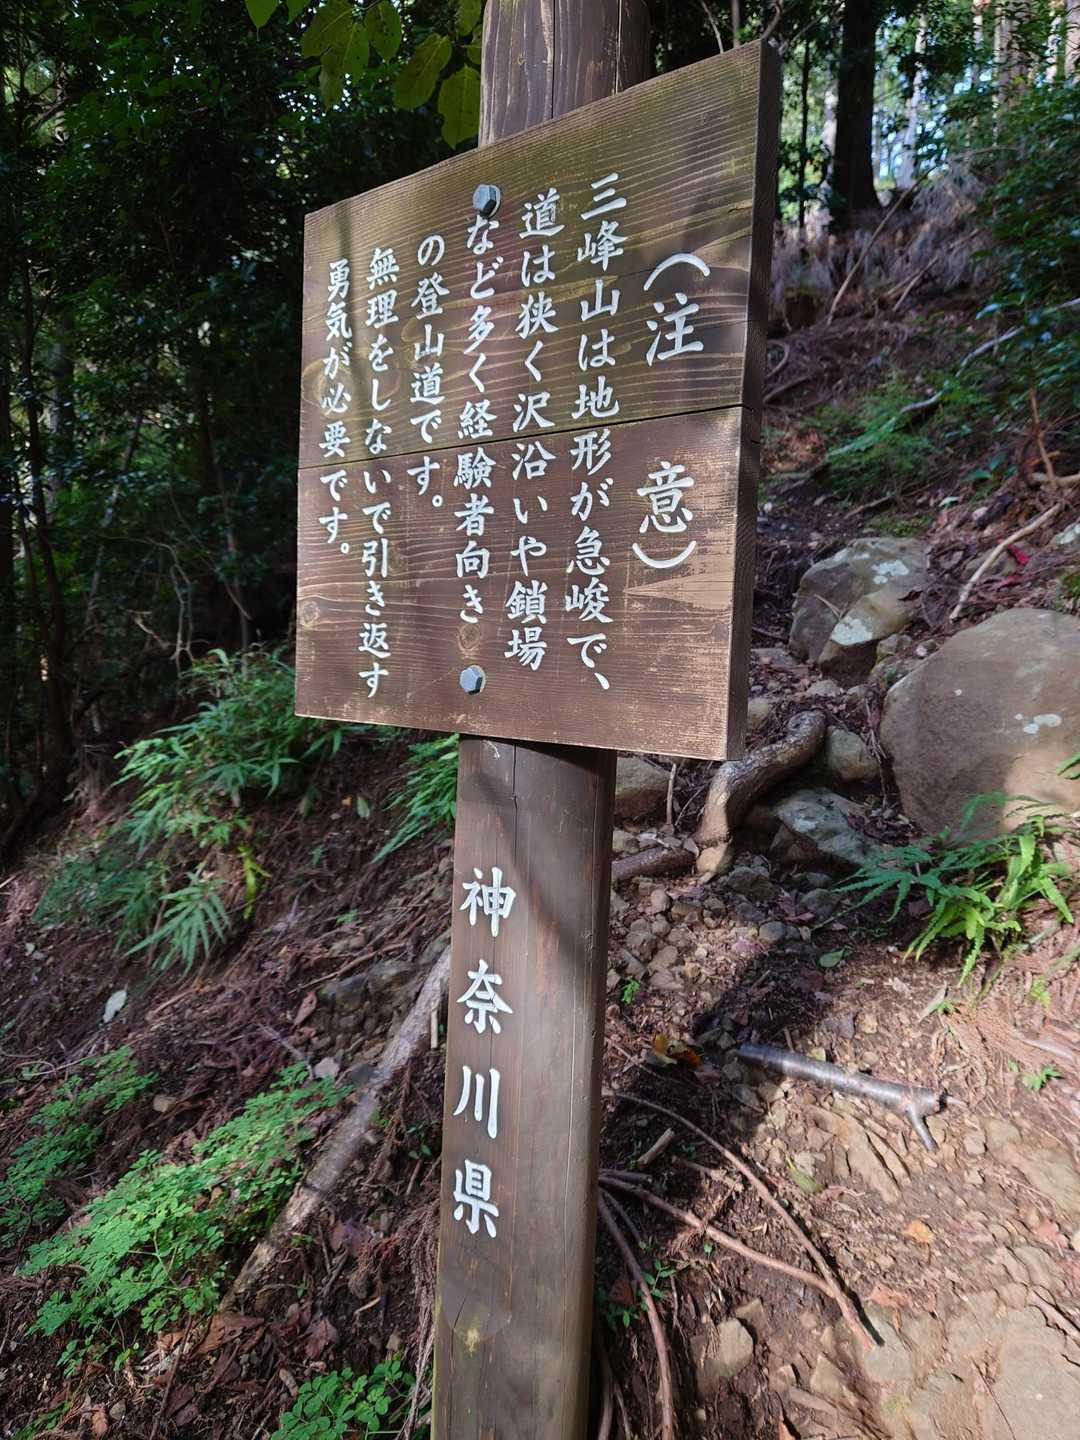 （注意）
三峰山は地形が急峻で、
道は狭く沢沿いや鎖場
など多く経験者向き
の登山道です。
無理をしないで引き返す
勇気が必要です。
神奈川県